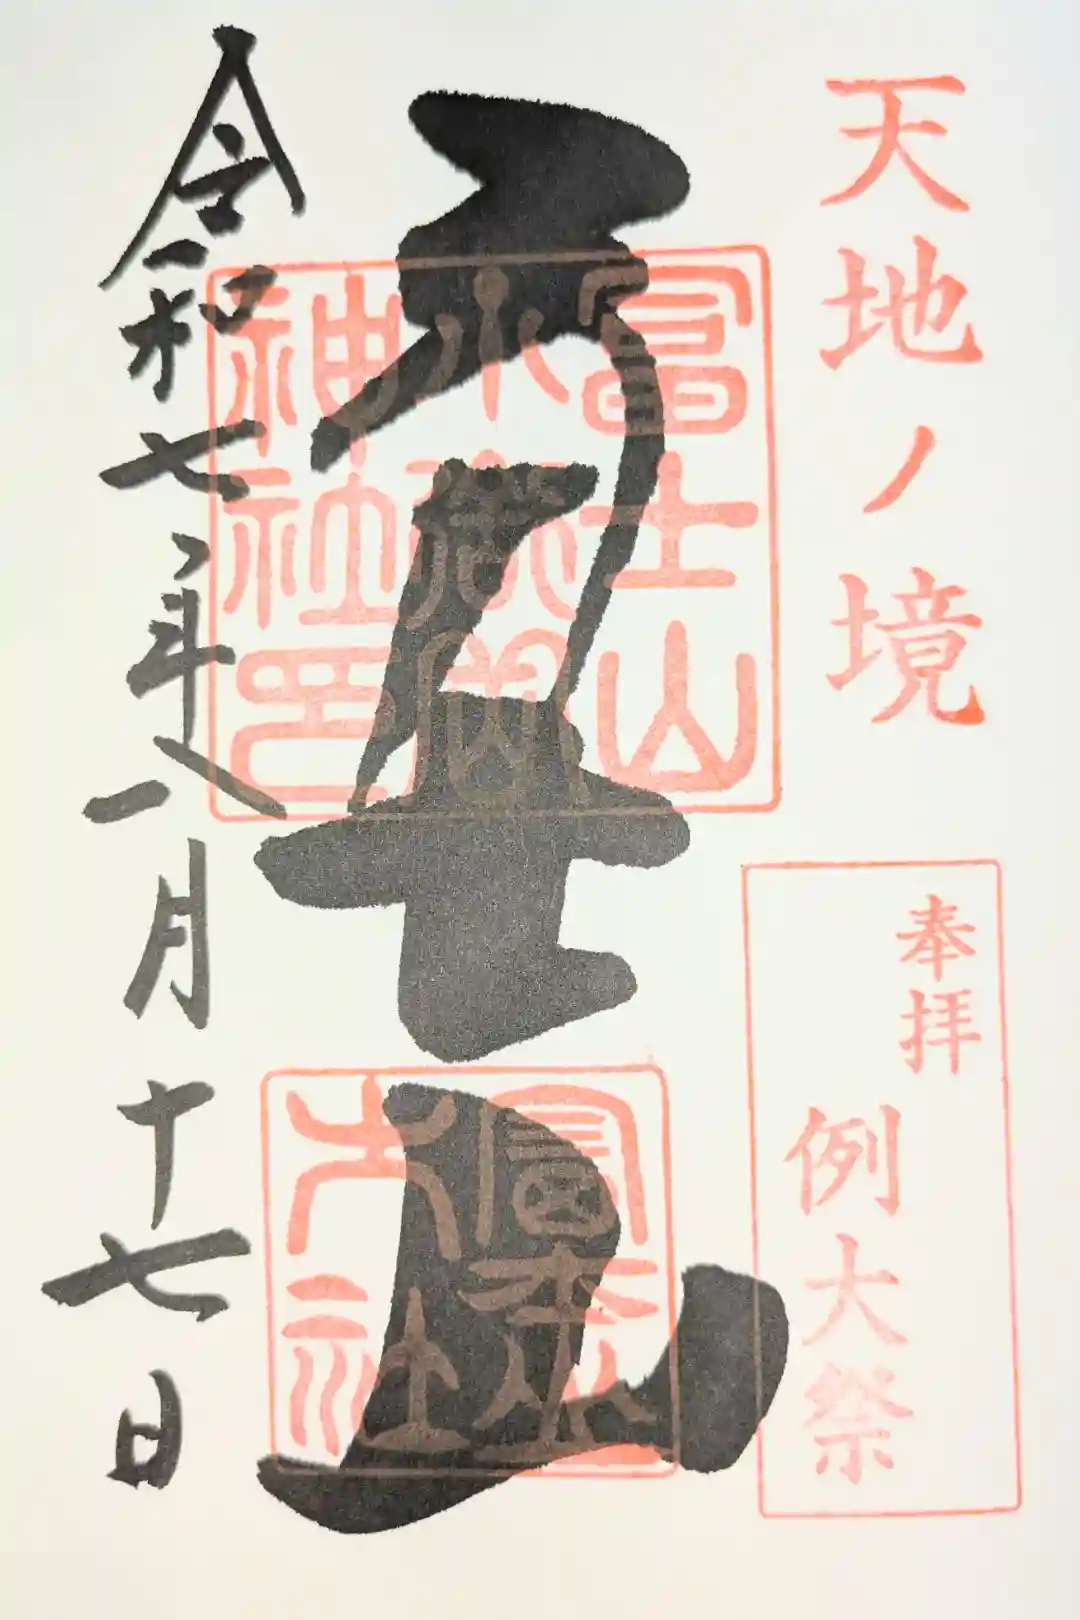 天地ノ境
奉拝
例大祭
冨士山
冨士山
小御嶽
神社印
令和七年一月十七日